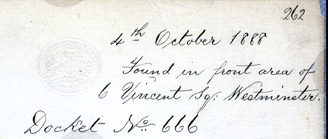 262
4th October 1888
Found in front area of
6 Vincent Sq: Westminster.
Docket No. 666